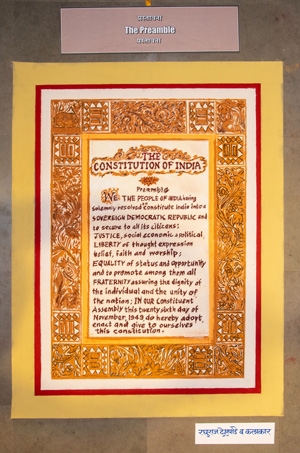 प्रस्तावना
The Preamble
प्रस्तावना
THE
CONSTITUTION OF INDIA
Preamble
WE THE PEOPLE OF INDIA being
solemnly resolved constitute India into a
SOVEREIGN DEMOCRATIC REPUBLIC and
to secure to all its citizens:
JUSTICE, social economic & political,
LIBERTY of thought expression
belief, faith and worship;
EQUALITY of status and opportunity
and to promote among them all
FRATERNITY assuring the dignity of
the individual and the unity of
the nation; IN OUR Constituent
Assembly this twenty sixth day of
November, 1949, do hereby adopt,
enact and give to ourselves
this constitution.
व कलाकार